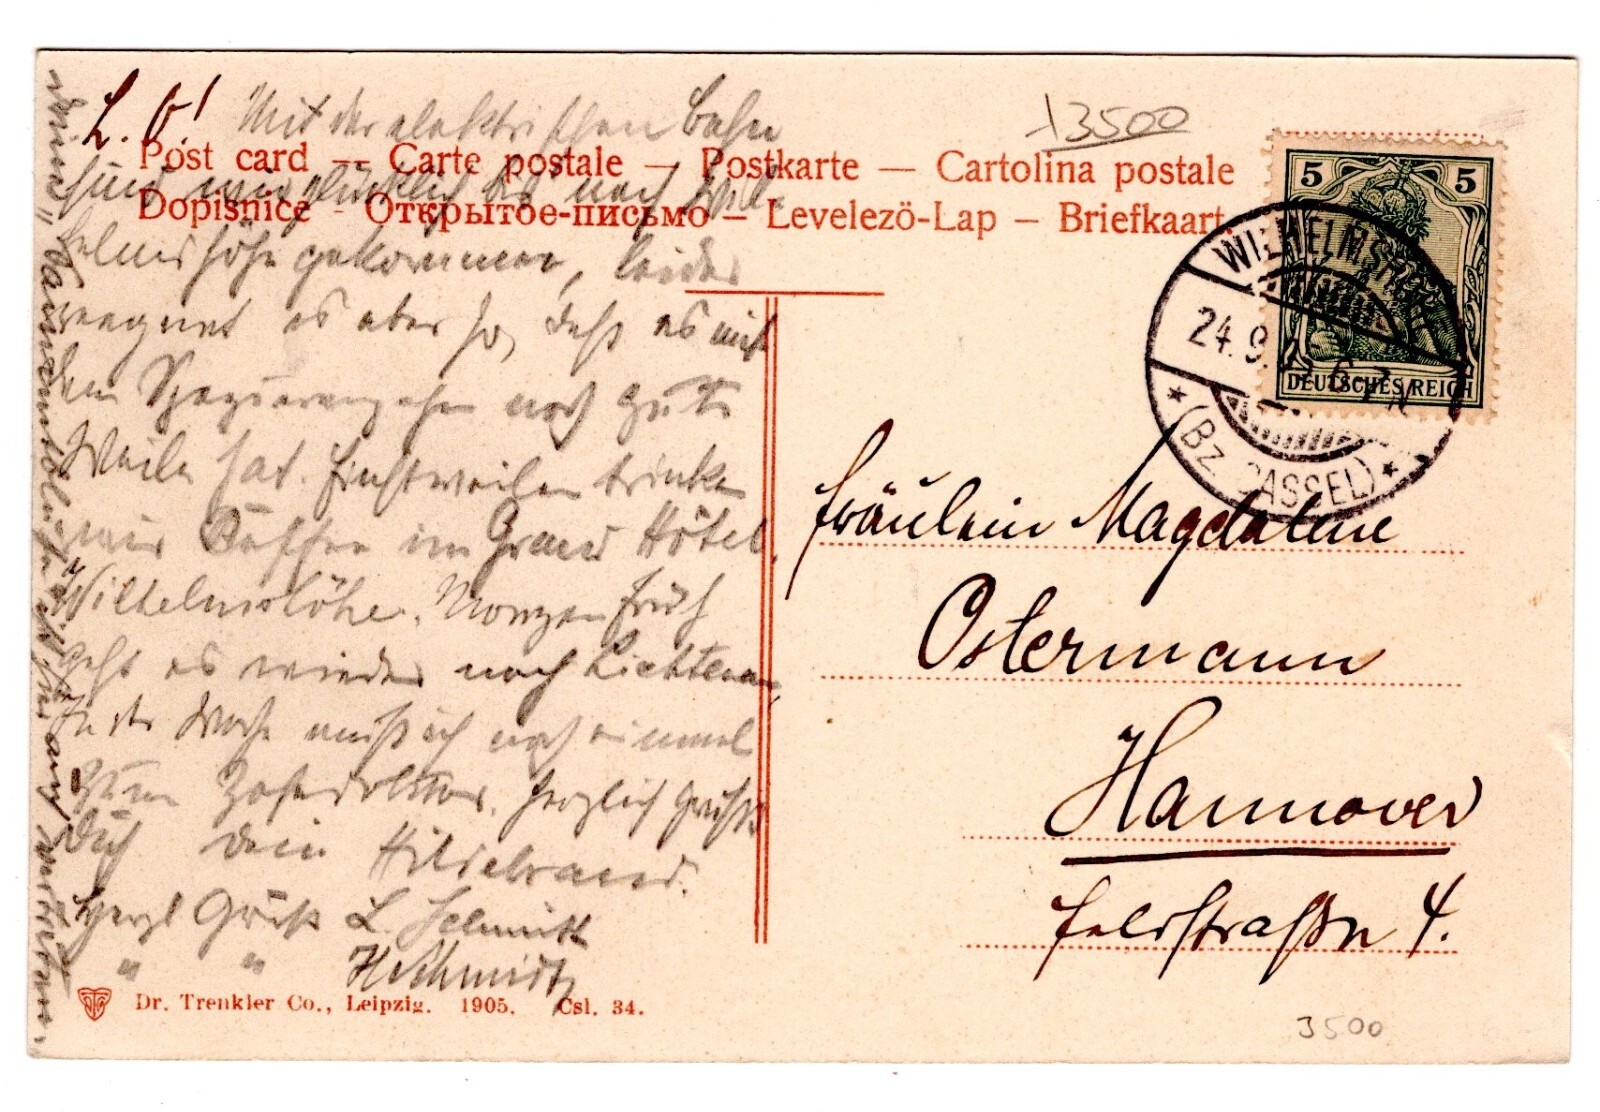 13500
Post card — Carte postale — Postkarte — Cartolina postale
Dopisnice - Открытое-письмо – Levelezö-Lap – Briefkaart.
5 5
DEUTSCHES REICH
WILHELMSHÖHE
24.9. 6-7 N
* (Bz. CASSEL) *
L. G! Mit der elektrischen Bahn
sind wir glücklich bis nach Wil-
helmshöhe gekommen, leider
regnet es aber so, daß es mit
dem Spazierengehen noch gute
Weile hat. Einstweilen trinken
wir Kaffee im Grand Hôtel
Wilhelmshöhe. Morgen früh
geht es wieder nach Lichtenau,
In der Woche muß ich noch einmal
zum Zahndoktor. Herzlich grüßt
Dich Dein Hildebrand.
Herzl Gruß L. Schmidt
" " H. Schmidt
Fräulein Magdalene
Ostermann
Hannover
Feldstraße 4.
Dr. Trenkler Co., Leipzig. 1905. Csl. 34.
3500